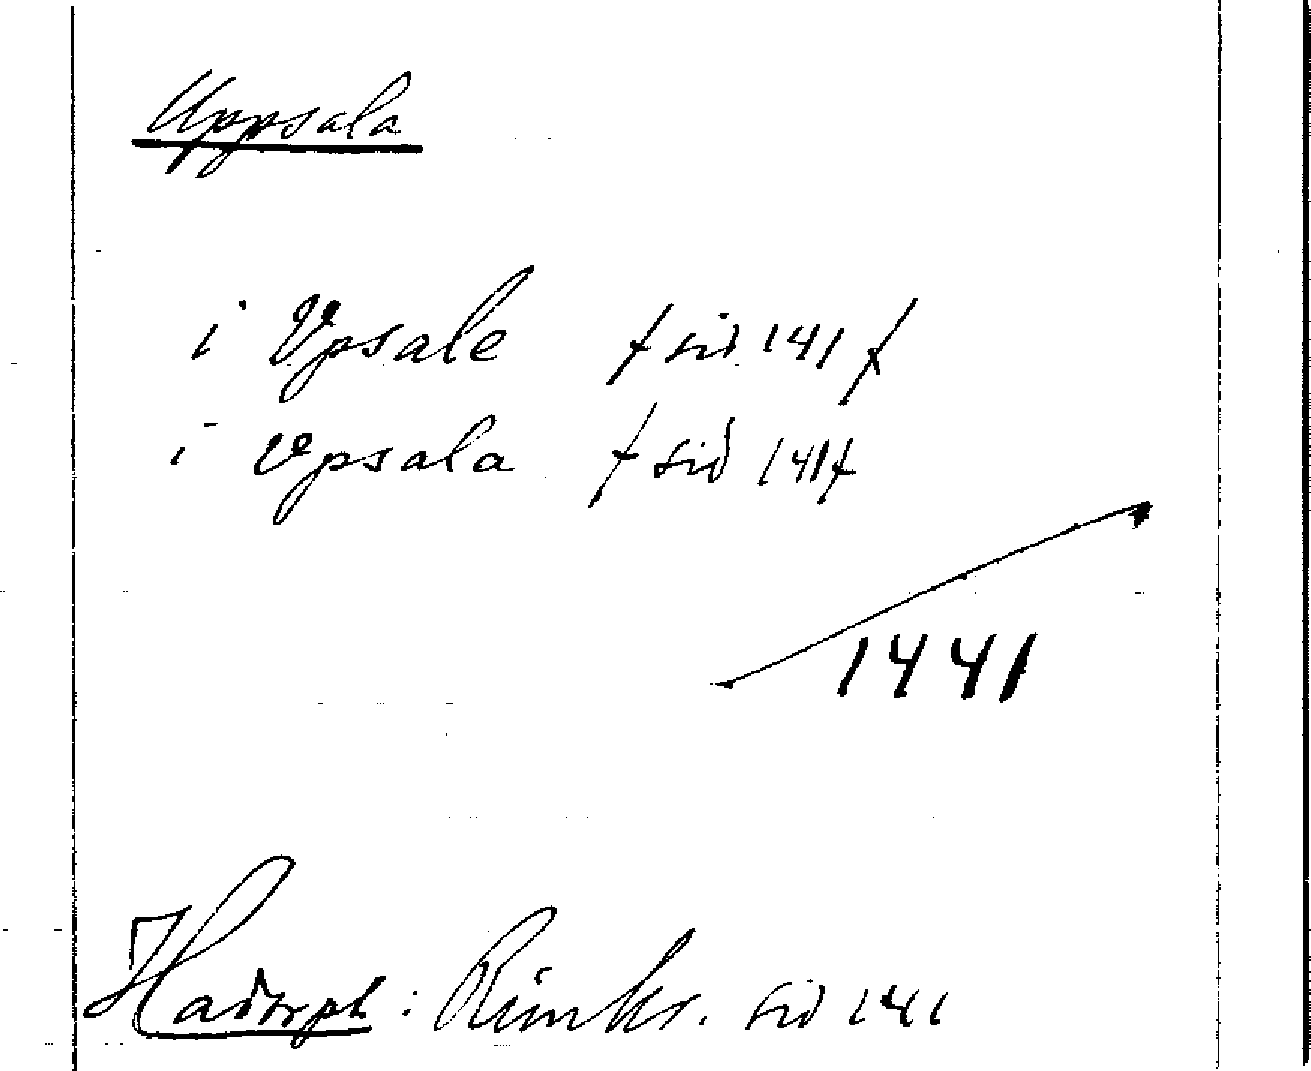 Uppsala
i Vpsale / sid 141 /
i Vpsala / sid 141 /
1441
Hadorph: Rimkr. sid 141